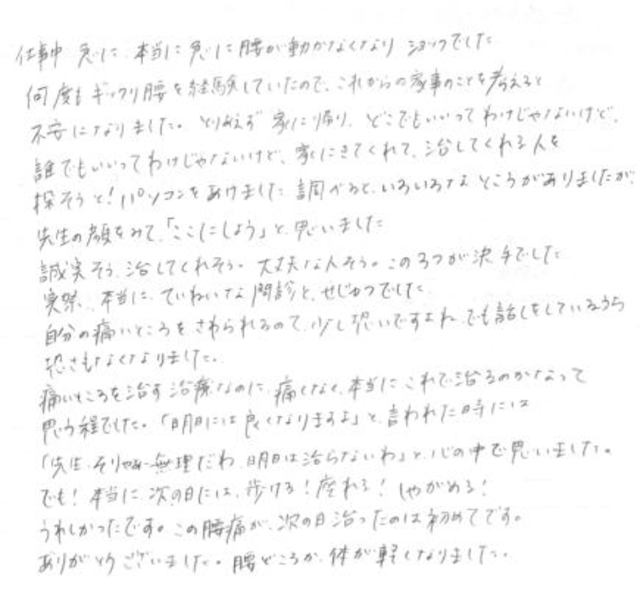 仕事中 急に、本当に急に腰が動かなくなり ショックでした
何度もギックリ腰を経験していたので、これからの家事のことを考えると
不安になりました。とりあえず 家に帰り、どこでもいいってわけじゃないけど、
誰でもいいってわけじゃないけど、家にきてくれて、治してくれる人を
探そうと！パソコンをあけました 調べると、いろいろなところがありましたが
先生の顔をみて、「ここにしよう」と思いました
誠実そう、治してくれそう。大丈夫な人そう。この3つが決手でした
実際、本当に、ていねいな問診と、せじゅつでした。
自分の痛いところをさわられるので、少し恐いですよね でも話しをしているうち
恐さもなくなりました。
痛いところを治す治療なのに、痛くなく、本当にこれで治るのかなって
思う程でした。「明日には良くなりますよ」と、言われた時には
「先生、そりゃぁ無理だわ 明日は治らないわ」と、心の中で思いました。
でも！本当に、次の日には、歩ける！座れる！しゃがめる！
うれしかったです。この腰痛が、次の日治ったのは初めてです。
ありがとうございました。腰どころか、体が軽くなりました。